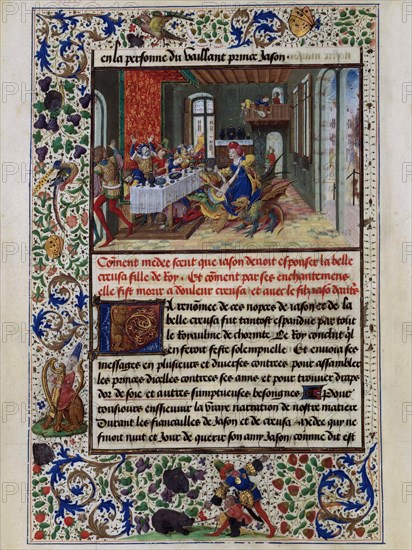 en la personne du vaillant prince Jason.
Cõment medee sceut que iason deuoit espouser la belle
creusa fille de Roy. Et cõment par ses enchantemens
elle fist morir a douleur creusa et auec le filz
A renõmee de ces nopces de iason et de la
belle creusa fut tantost espandue par tout
le Royaulme de Le Roy conclut ql
en feroit feste solempnelle. Et enuoia ses
messages en plusieurs et diuerses contrees pour assambler
les princes dicelles contrees ses amis et pour trouuer draps
dor de soie et autres sumptueuses besongnes Pour
tousiours ensieuir la vraye narration de nostre matiere
Durant les fiancailles de Jason et de creusa medee qui ne
finoit nuit et Jour de querir son amy Jason, comme dit est